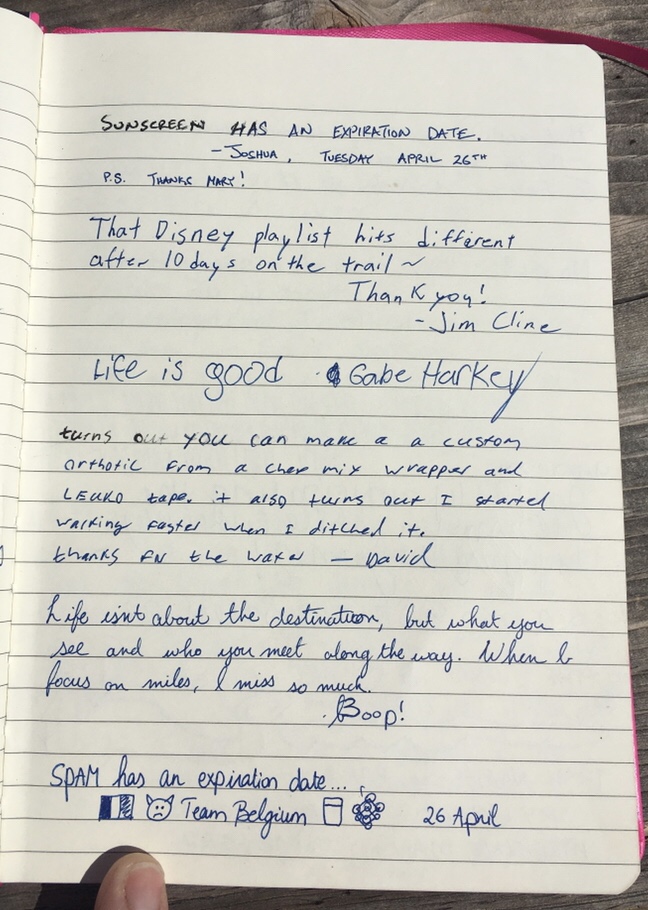 SUNSCREEN HAS AN EXPIRATION DATE.
-JOSHUA, TUESDAY APRIL 26TH
P.S. THANKS MARY!
That Disney playlist hits different
after 10 days on the trail ~
Thank you!
- Jim Cline
Life is good Gabe Harkey
turns out you can make a a custom
orthotic from a chex mix wrapper and
LEUKO tape. it also turns out I started
walking faster when I ditched it.
thanks for the water — David
Life isn't about the destination, but what you
see and who you meet along the way. When I
focus on miles, I miss so much.
Boop!
SPAM has an expiration date...
Team Belgium 26 April